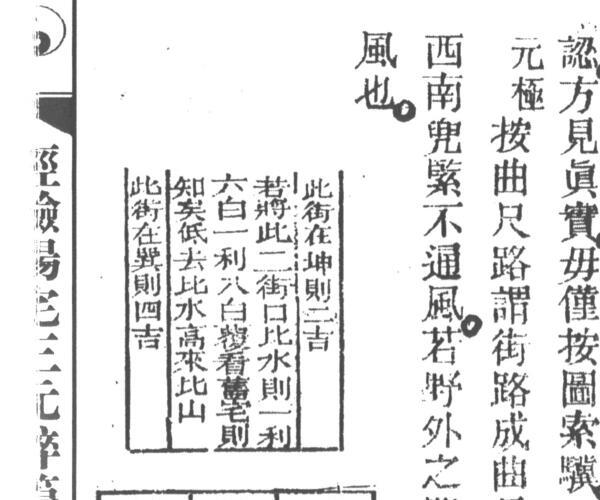 認方見眞實毋僅按圖索驥
元極按曲尺路謂街路成曲
西南兜緊不通風若野外之
風也
此街在坤則二吉
若將此二街口比水則一利
六白一利八白覆看舊宅則
知矣低去比水高來比山
此街在巽則四吉
經驗陽宅三元